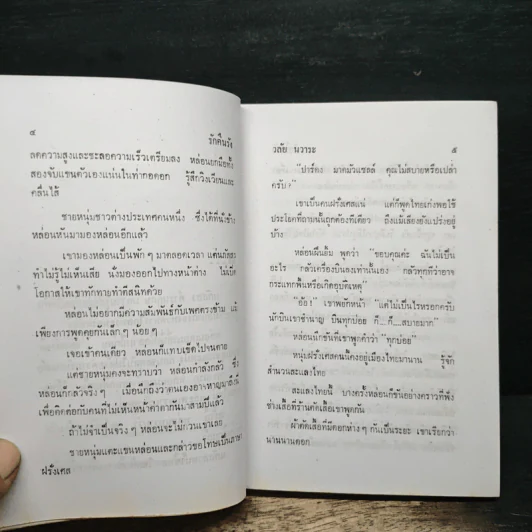 ๔
รักคืนรัง
ลดความสูงและชะลอความเร็วเตรียมลง หล่อนยกมือทั้ง
สองจับแขนตัวเองแน่นในท่ากอดอก รู้สึกวิงเวียนและ
คลื่นไส้
ชายหนุ่มชาวต่างประเทศคนหนึ่ง ซึ่งได้ที่นั่งข้าง
หล่อนหันมามองหล่อนอีกแล้ว
เขามองหล่อนเป็นพัก ๆ มาตลอดเวลา แต่นภัส
ทำไม่รู้ไม่เห็นเสีย นั่งมองออกไปทางหน้าต่าง ไม่เปิด
โอกาสให้เขาทักทายทำตีสนิทด้วย
หล่อนไม่อยากมีความสัมพันธ์กับเพศตรงข้าม แม้
เพียงการพูดคุยกันเล็ก ๆ น้อย ๆ
เจอเข้าคนเดียว หล่อนก็แทบเข็ดไปจนตาย
แต่ชายหนุ่มคงจะทราบว่า หล่อนกำลังกลัว ซึ่ง
หล่อนก็กลัวจริง ๆ เมื่อนึกถึงว่าตนเองอาจหาญมาถึงนี่
เพื่อติดต่อกับคนที่ไม่เห็นหน้าค่าตากันมาสามปีแล้ว
ถ้าไม่จำเป็นจริง ๆ หล่อนจะไม่กวนเขาเลย
ชายหนุ่มแตะแขนหล่อนและกล่าวขอโทษเป็นภาษา
ฝรั่งเศส
วลัย นวาระ
๕
"ปาร์ดอง มาดมัวแซลล์ คุณไม่สบายหรือเปล่า
ครับ?"
เขาเป็นคนฝรั่งเศสแน่ แต่ก็พูดไทยเก่งพอใช้
ประโยคที่ถามนั้นถูกต้องทีเดียว ถึงแม้เสียงยังแปร่งอยู่
บ้าง
หล่อนฝืนยิ้ม พูดว่า "ขอบคุณค่ะ ฉันไม่เป็น
อะไร กลัวเครื่องบินลงเท่านั้นเอง กลัวทุกทีว่าอาจ
กระแทกพื้นหรือเกิดอุบัติเหตุ"
"อ้อ!" เขาพยักหน้า "แต่ไม่เป็นไรหรอกครับ
นักบินเขาชำนาญ บินทุกบ่อย ก็...ก็...สบายมาก"
หล่อนนึกขันที่เขาพูดคำว่า "ทุกบ่อย"
หนุ่มฝรั่งเศสคนนี้คงอยู่เมืองไทยมานาน รู้จัก
สำนวนสะแลงไทย
สะแลงไทยนี้ บางครั้งหล่อนก็ขันอย่างคราวที่ฟัง
ช่างเสื้อที่ร้านตัดเสื้อเขาพูดกัน
ผ้าตัดเสื้อที่มีดอกห่าง ๆ กันเป็นระยะ เขาเรียกว่า
นานนานดอก